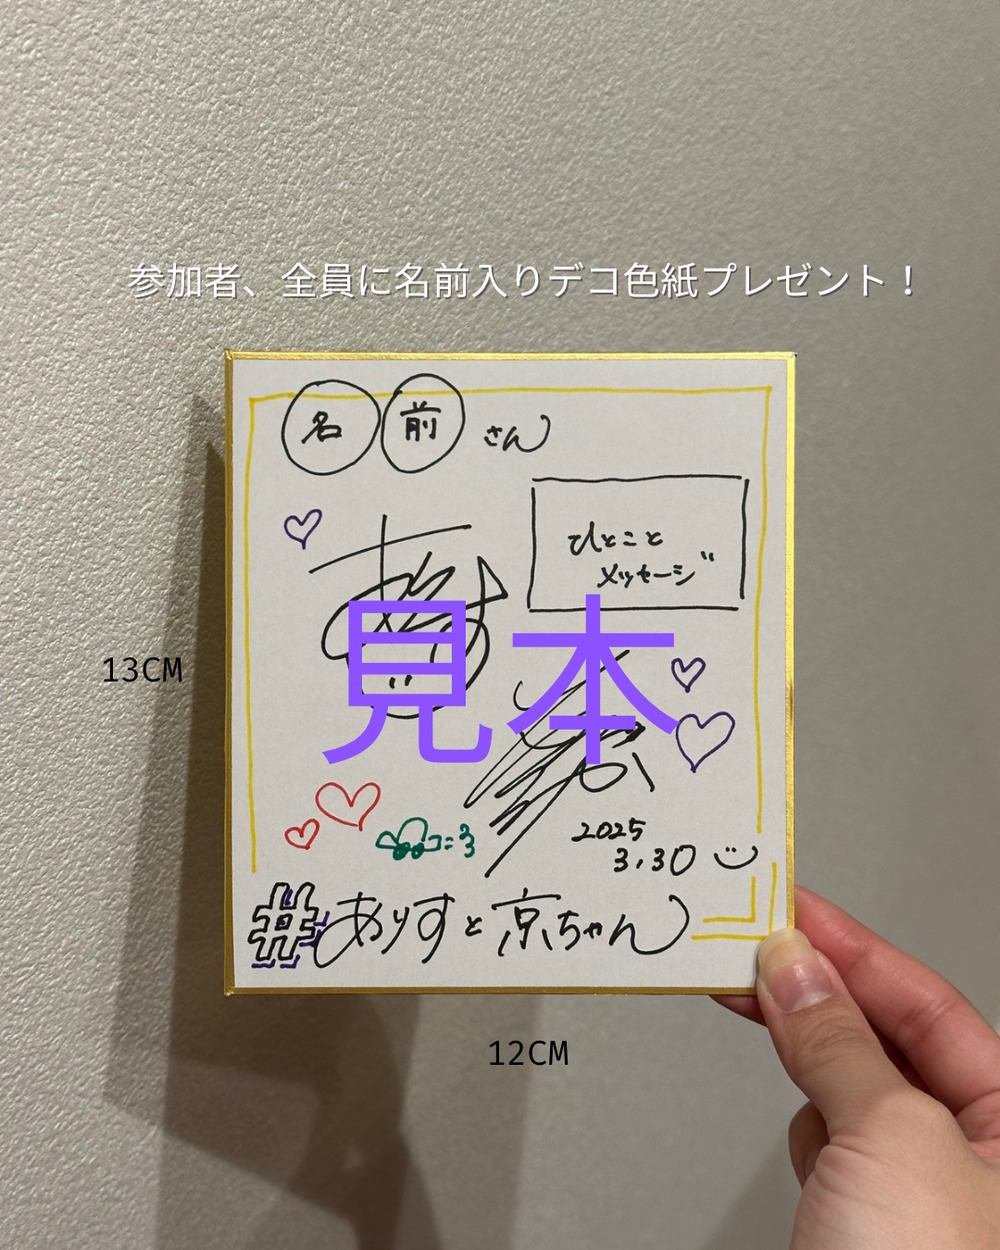 参加者、全員に名前入りデコ色紙プレゼント！
名前さん
ひとこと
メッセージ
見本
13CM
2025
3.30
#ありすと京ちゃん
12CM